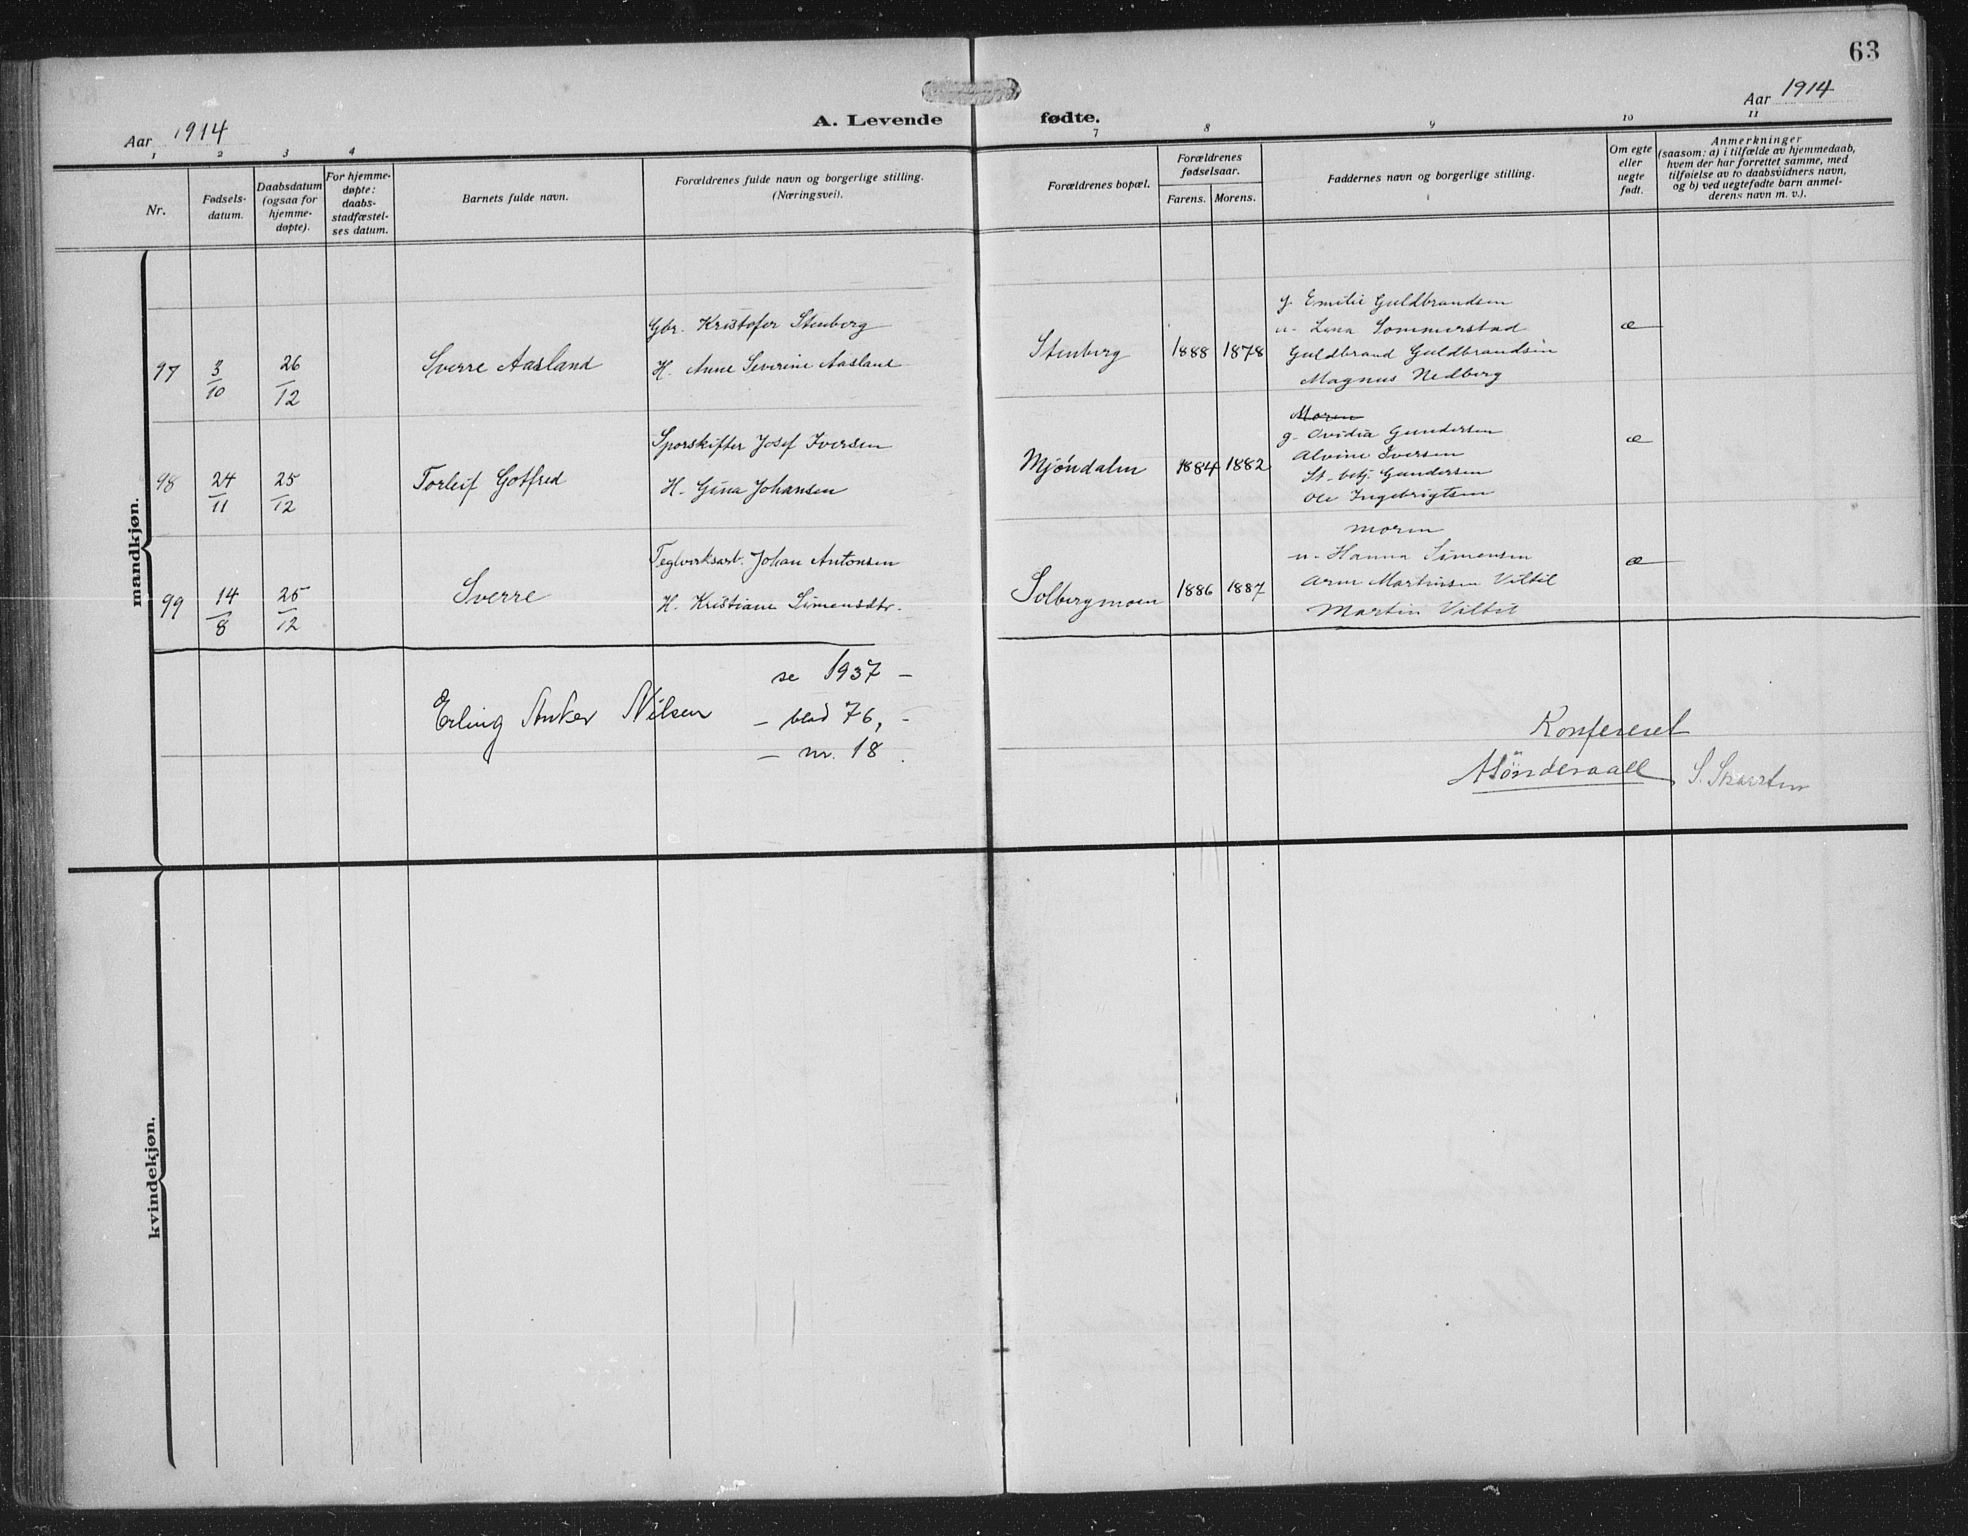 63
Aar 1914
A. Levende fødte.
Aar 1914
1 2 3 4 7 8 9 10 11
Nr.
Fødsels-
datum.
Daabsdatum
(ogsaa for
hjemme-
døpte).
For hjemme-
døpte:
daabs-
stadfæstel-
ses datum.
Barnets fulde navn.
Forældrenes fulde navn og borgerlige stilling.
(Næringsvei).
Forældrenes bopæl.
Forældrenes
fødselsaar.
Farens. Morens.
Faddernes navn og borgerlige stilling.
Om egte
eller
uegte
født.
Anmerkninger
(saasom: a) i tilfælde av hjemmedaab,
hvem der har forrettet samme, med
tilføielse av to daabsvidners navn,
og b) ved uegtefødte barn anmel-
derens navn m. v.).
mandkjøn.
97 3/10 26/12 Sverre Aasland
Gbr. Kristofer Stenberg
H. Anne Severine Aasland
Stenberg 1888 1878
g. Emilie Guldbrandsen
u. Lina Sommerstad
Guldbrand Guldbrandsen
Magnus Nedberg
æ
98 24/11 25/12 Torleif Gotfred
Sporskifter Josef Iversen
H. Gina Johansen
Mjöndalen 1884 1882
Moren
g. Ovidia Gundersen
Alvine Iversen
St. betj. Gundersen
Ole Ingebrigtsen
æ
99 14/8 25/12 Sverre
Teglverksarb. Johan Antonsen
H. Kristiane Simensdtr.
Solbergmoen 1886 1887
Moren
u. Hanna Simensen
Arne Martinsen Viltil
Martin Viltil
æ
Erling Anker Nilsen
se 1937 –
– blad 76, –
– nr. 18.
Konfereret
S. Skarsten
kvindekjøn.